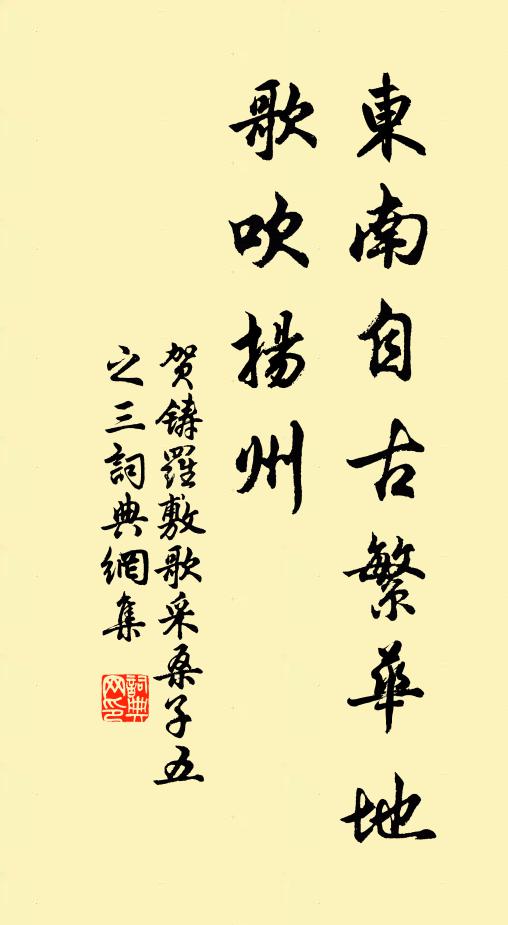 東南自古繁華地
歌吹揚州
賀鑄羅敷歌采桑子五
之三詞典網集
詞典
网印